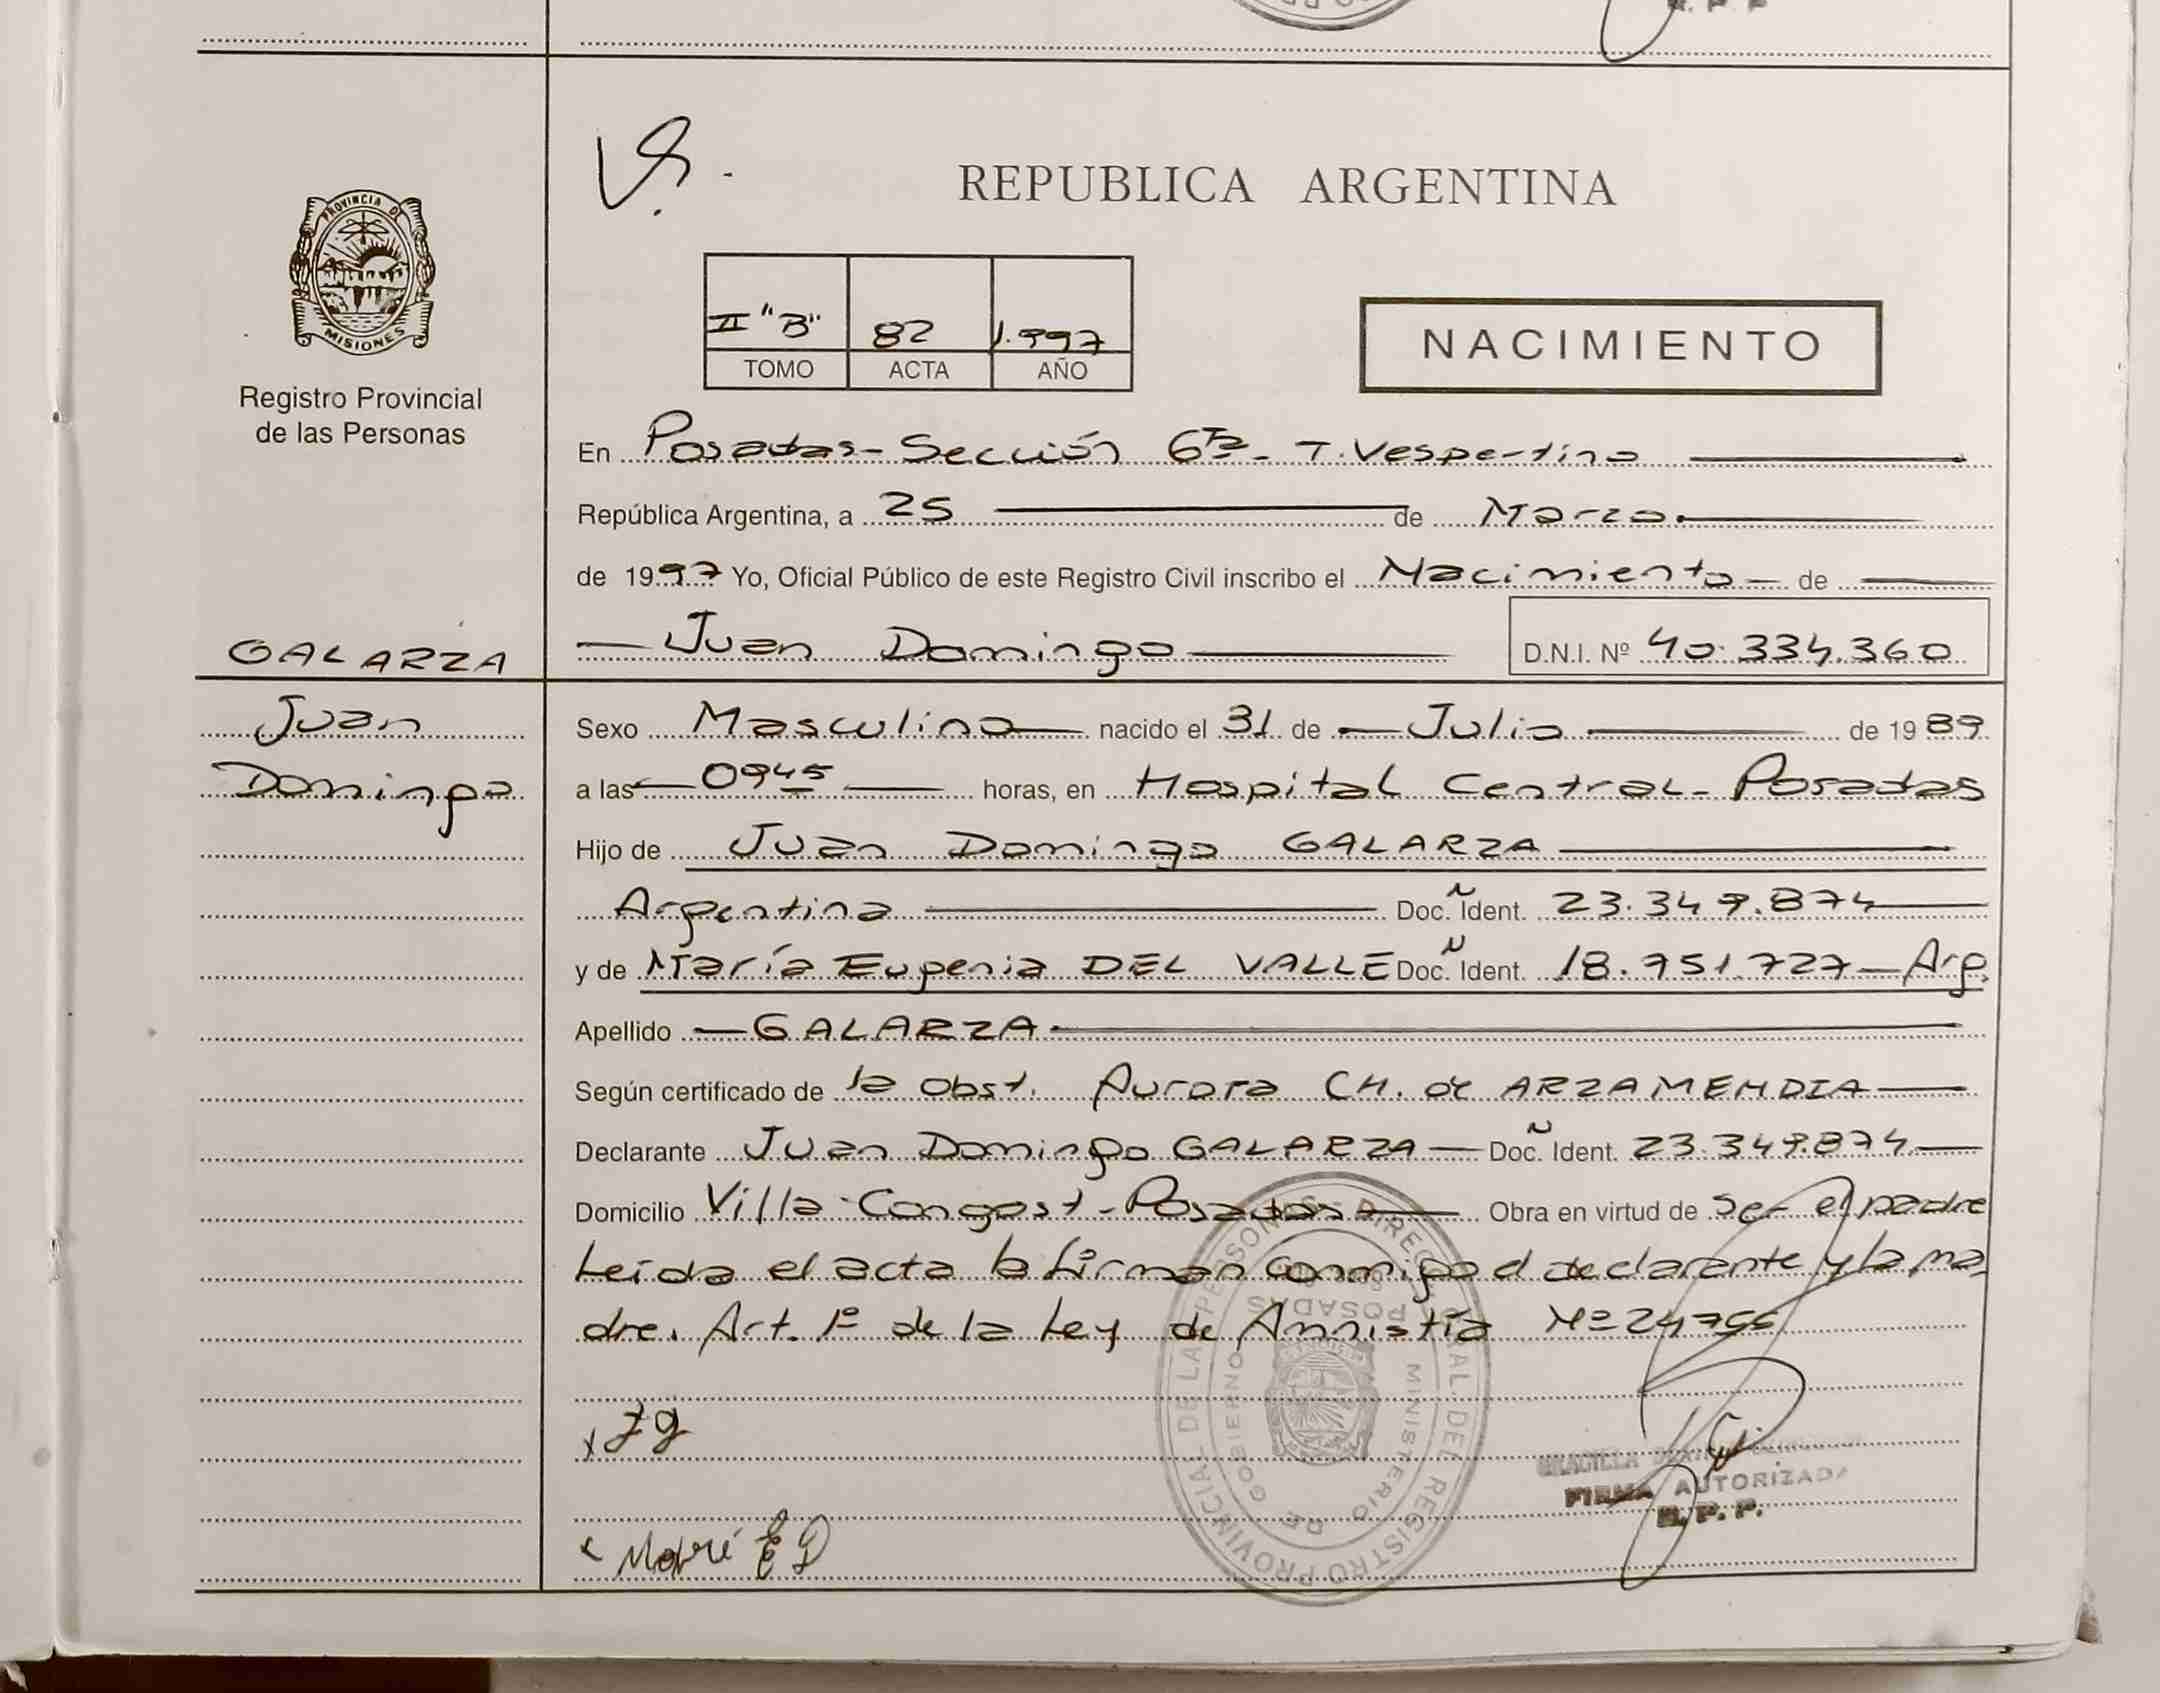 REPUBLICA ARGENTINA
PROVINCIA DE
MISIONES
Registro Provincial
de las Personas
II "B" 82 1.997
TOMO ACTA AÑO
NACIMIENTO
En Posadas - Sección 6ta - T. Vespertino
República Argentina, a 25 de Marzo
de 1997 Yo, Oficial Público de este Registro Civil inscribo el Nacimiento de
GALARZA
Juan
Domingo
Juan Domingo D.N.I. Nº 40.334.360
Sexo Masculino nacido el 31 de Julio de 1989
a las 0945 horas, en Hospital Central - Posadas
Hijo de Juan Domingo GALARZA
Argentina Doc. Ident. 23.349.874
y de María Eugenia DEL VALLE Doc. Ident. 18.751.727 - Arg.
Apellido GALARZA
Según certificado de la Obst. Aurora CH. de ARZAMENDIA
Declarante Juan Domingo GALARZA Doc. Ident. 23.349.874
Domicilio Villa Congost - Posadas Obra en virtud de ser el padre
Leída el acta la firman conmigo el declarante y la ma
dre. Art. 1º de la Ley de Amnistía Nº 24755
REGISTRO PROVINCIAL DE LAS PERSONAS DIRECC GRAL. DEL
MINISTERIO DE GOBIERNO
POSADAS
GRACIELA
FIRMA AUTORIZADA
R. P. P.